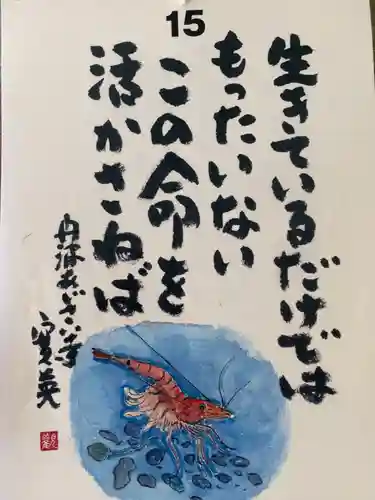 15
生きているだけでは
もったいない
この命を
活かさねば
丹波あじさい寺
寳英